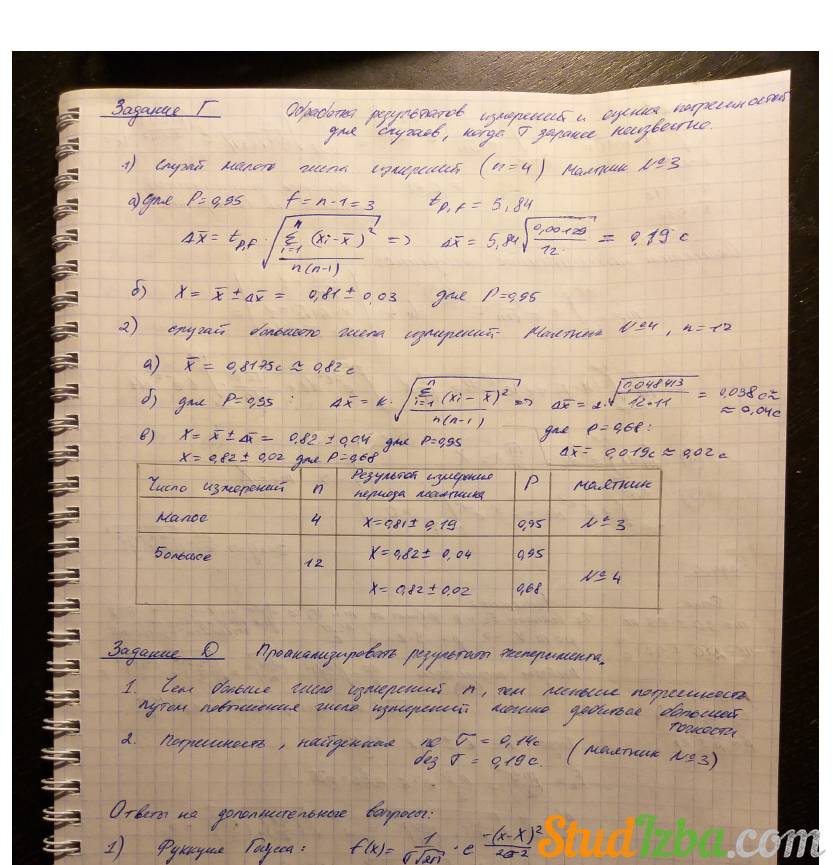 Задание Г Обработка результатов измерений и оценка погрешностей
для случаев, когда σ заранее неизвестно.
1) Случай малого числа измерений (n=4) маятник №3
а) для P=0,95 f=n-1=3 t_{P,f} = 5,84
Δx̄ = t_{P,f} · √(Σ_{i=1}^{n} (xi-x̄)² / n(n-1)) => Δx̄ = 5,84 √(0,00129 / 12) = 0,19 с
б) X = x̄ ± Δx̄ = 0,81 ± 0,03 для P=0,95
2) случай большого числа измерений Маятник №4, n=12
а) x̄ = 0,8175с ≈ 0,82с
б) для P=0,95: Δx̄ = K · √(Σ_{i=1}^{n} (xi - x̄)² / n(n-1)) => Δx̄ = 2·√(0,048413 / 12·11) = 0,038с ≈
≈ 0,04с
для P=0,68:
Δx̄ = 0,019с ≈ 0,02с
в) X = x̄ ± Δx̄ = 0,82 ± 0,04 для P=0,95
X = 0,82 ± 0,02 для P=0,68
Число измерений n Результат измерения периода маятника P маятник
Малое 4 X=0,81± 0,19 0,95 №3
Большое 12 X=0,82± 0,04 0,95 №4
X= 0,82 ± 0,02 0,68
Задание D Проанализировать результаты эксперимента.
1. Чем больше число измерений n, тем меньше погрешность
путем повышения числа измерений можно добиться большей
точности
2. Погрешность, найденная по σ = 0,14с
без σ = 0,19с. (маятник №3)
Ответы на дополнительные вопросы:
1) Функция Гаусса: f(x)= 1/(σ√2π) · e^{-(x-X)²/2σ²}
StudIzba.com